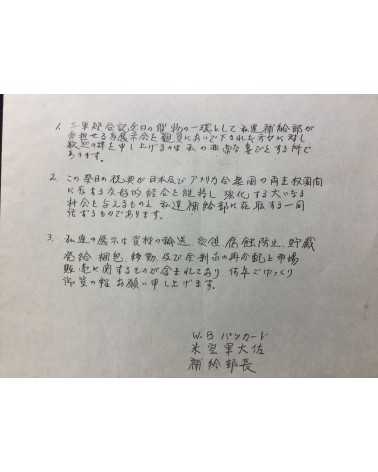 1. 三軍総合記念日の催物の一環として私達補給部が
主催せる展示会を観覧においで下された方々に対し
歓迎の辞を申し上げるのは私の非常な喜びとする所で
あります。
2. この祭日の祝典が日本及びアメリカ合衆国の両主权国間
に存する友好的結合を維持し強化する大いなる
機会を与えるものと私達補給部に在職する一同
信ずるものであります。
3. 私達の展示は資材の輸送、交換、腐蝕防止、貯蔵
発給、梱包、移動、及び余剰品の再分配と市場
販売に関するものが含まれており何卒ごゆっくり
御覧の程お願い申し上げます。
W.B パンカード
米空軍大佐
補給部長